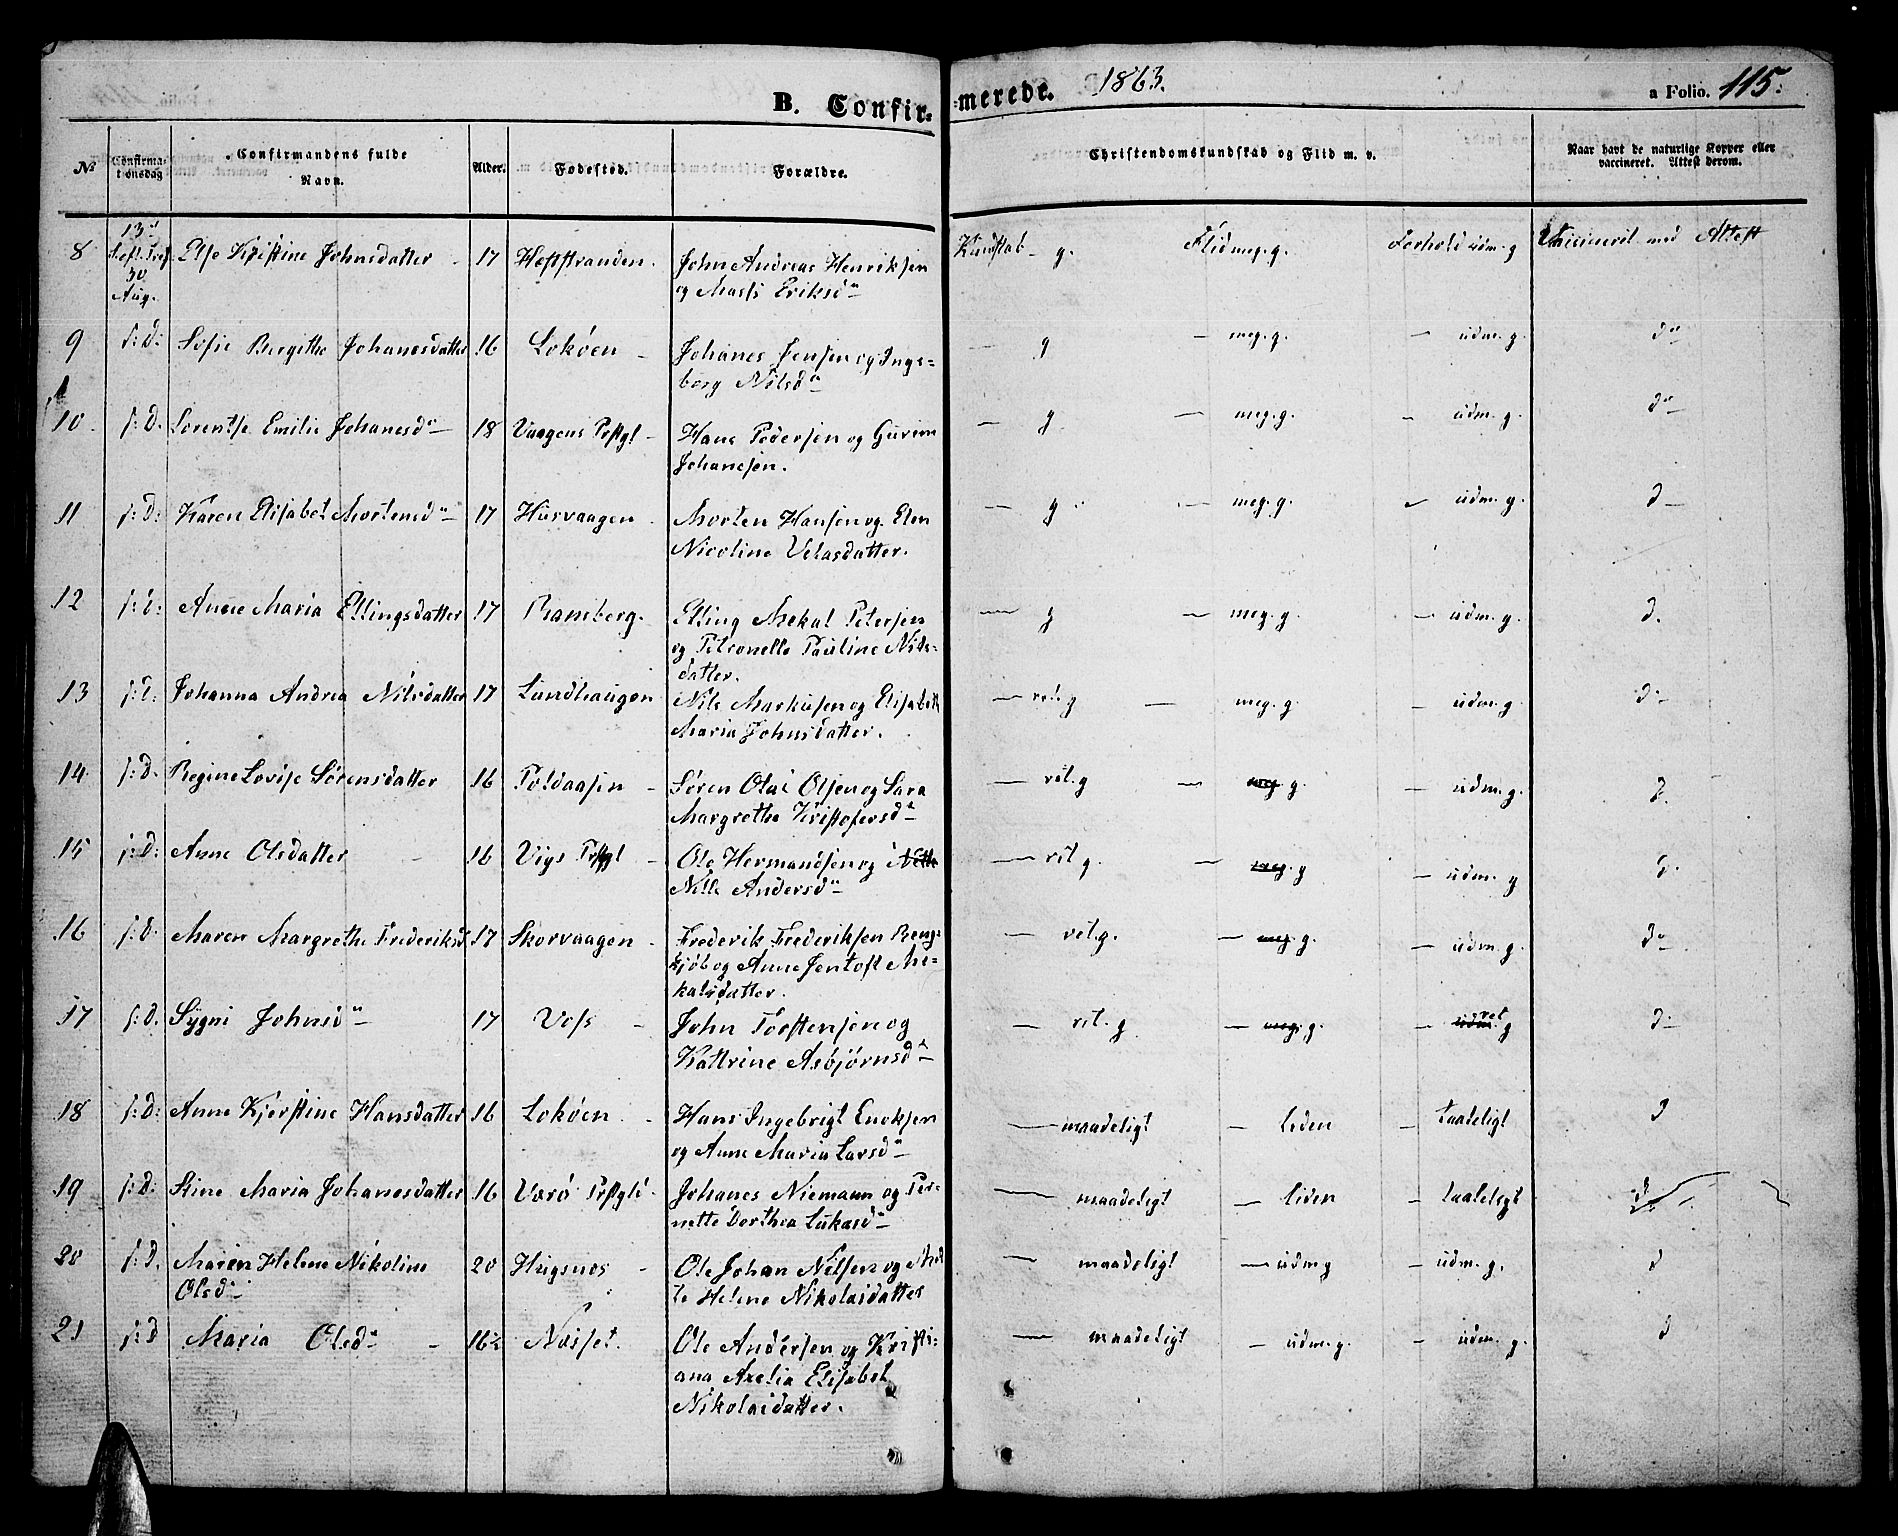 B. Confir-
merede.
1863.
a Folio. 115.
№
Confirma-
tionsdag
Confirmandens fulde
Navn.
Alder.
Fødested.
Forældre.
Christendomskundskab og Flid m. v.
Naar havt de naturlige Kopper eller
vaccineret. Attest derom.
8 Else Kristine Johnsdatter 17 Hofstranden. John Andreas Henriksen Kundskab - g. Flid meg. g. Forhold udm. g Vaccineret med Attest
30 Aug.
og Eriksd
9 s: d: Sofie Bergithe Johanesdatter 16 Lokøen Johanes Jensen og Inge=
borg Nilsd
— g — meg. g. — udm. g. do
10. s: d. Lorentse Emilie Johanesd 18 Vaagens Prstgl Hans Pedersen og
Johanesen.
— g — meg. g. — udm. g. do
11 s: d: Karen Elisabet Mortensd 17 Husvaagen Morten Hansen og Elen
Nicoline Datter.
— g — meg. g. — udm. g. d
12 s: d: Anne Maria Ellingsdatter 17 Ramberg. Elling Mekal Petersen
og Petronelle Pauline Nils-
datter.
— g — meg. g. — udm. g. d.
13 s: d: Johanna Andrea Nilsdatter 17 Lundhaugen Nils Markusen og Elisabeth
Maria Johnsdatter.
— vel. g — meg. g. — udm. g d
14 s: d. Regine Lovise Sørensdatter 16 Poldaasen Søren Olai Olsen og Sara
Margrethe Kristofersd
— vel. g — meg g. — udm. g. d.
15 s: d: Anne Olsdatter 16 Vigs Prstgl Ole Hermandsen og
Nille Andersd
— vel g. — meg. g — udm. g d.
16 s: d: Maren Margrethe Frederiksd 17 Skorvaagen Frederik Frederiksen Reng-
kjøb og Anne Jentoft Me-
kalsdatter.
— vel. g. — meg. g. — udm. g. do
17 s: d. Sygni Johnsd 17 Voss John Torstensen og
Kattrine Asbjørnsd
— vel. g — meg. g. — udm. vel g d
18 s: d: Anne Kjerstine Hansdatter 16 Lokøen Hans Ingebrigt Enoksen
og Anne Maria Larsd
— maadeligt — liden — taaleligt d
19 s: d: Stine Maria Johanesdatter 16 Værø Prstgld Johanes Niemann og Per-
nette Dorthea Lukasd
— maadeligt — liden — taaleligt d
20 s: d. Maren Helene Nikoline 20 Hugsnes Ole Johan Nilsen og
Olsd Helene Nikolaisdatter
— maadeligt — udm g — udm. g. d
21 s: d Maria Olsd 16½ Næsset. Ole Andersen og Kristi-
ana Axelia Elisabet
Nikolaidatter.
— maadeligt — udm. g. — udm. g. d